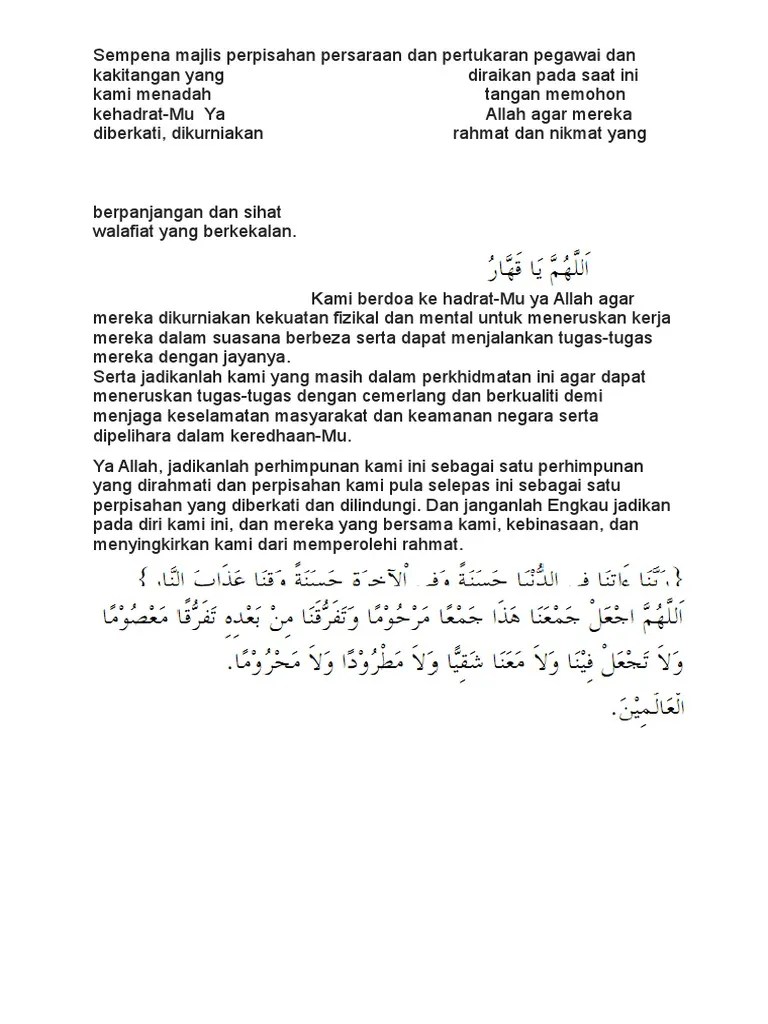 Sempena majlis perpisahan persaraan dan pertukaran pegawai dan
kakitangan yang diraikan pada saat ini
kami menadah tangan memohon
kehadrat-Mu Ya Allah agar mereka
diberkati, dikurniakan rahmat dan nikmat yang
berpanjangan dan sihat
walafiat yang berkekalan.
اَللَّهُمَّ يَا قَهَّارُ
Kami berdoa ke hadrat-Mu ya Allah agar
mereka dikurniakan kekuatan fizikal dan mental untuk meneruskan kerja
mereka dalam suasana berbeza serta dapat menjalankan tugas-tugas
mereka dengan jayanya.
Serta jadikanlah kami yang masih dalam perkhidmatan ini agar dapat
meneruskan tugas-tugas dengan cemerlang dan berkualiti demi
menjaga keselamatan masyarakat dan keamanan negara serta
dipelihara dalam keredhaan-Mu.
Ya Allah, jadikanlah perhimpunan kami ini sebagai satu perhimpunan
yang dirahmati dan perpisahan kami pula selepas ini sebagai satu
perpisahan yang diberkati dan dilindungi. Dan janganlah Engkau jadikan
pada diri kami ini, dan mereka yang bersama kami, kebinasaan, dan
menyingkirkan kami dari memperolehi rahmat.
{رَبَّنَا ءَاتِنَا فِي الدُّنْيَا حَسَنَةً وَفِي الْآخِرَةِ حَسَنَةً وَقِنَا عَذَابَ النَّارِ}
اَللَّهُمَّ اجْعَلْ جَمْعَنَا هَذَا جَمْعًا مَرْحُوْمًا وَتَفَرُّقَنَا مِنْ بَعْدِهِ تَفَرُّقًا مَعْصُوْمًا
وَلاَ تَجْعَلْ فِيْنَا وَلاَ مَعَنَا شَقِيًّا وَلاَ مَطْرُوْدًا وَلاَ مَحْرُوْمًا.
الْعَالَمِيْنَ.